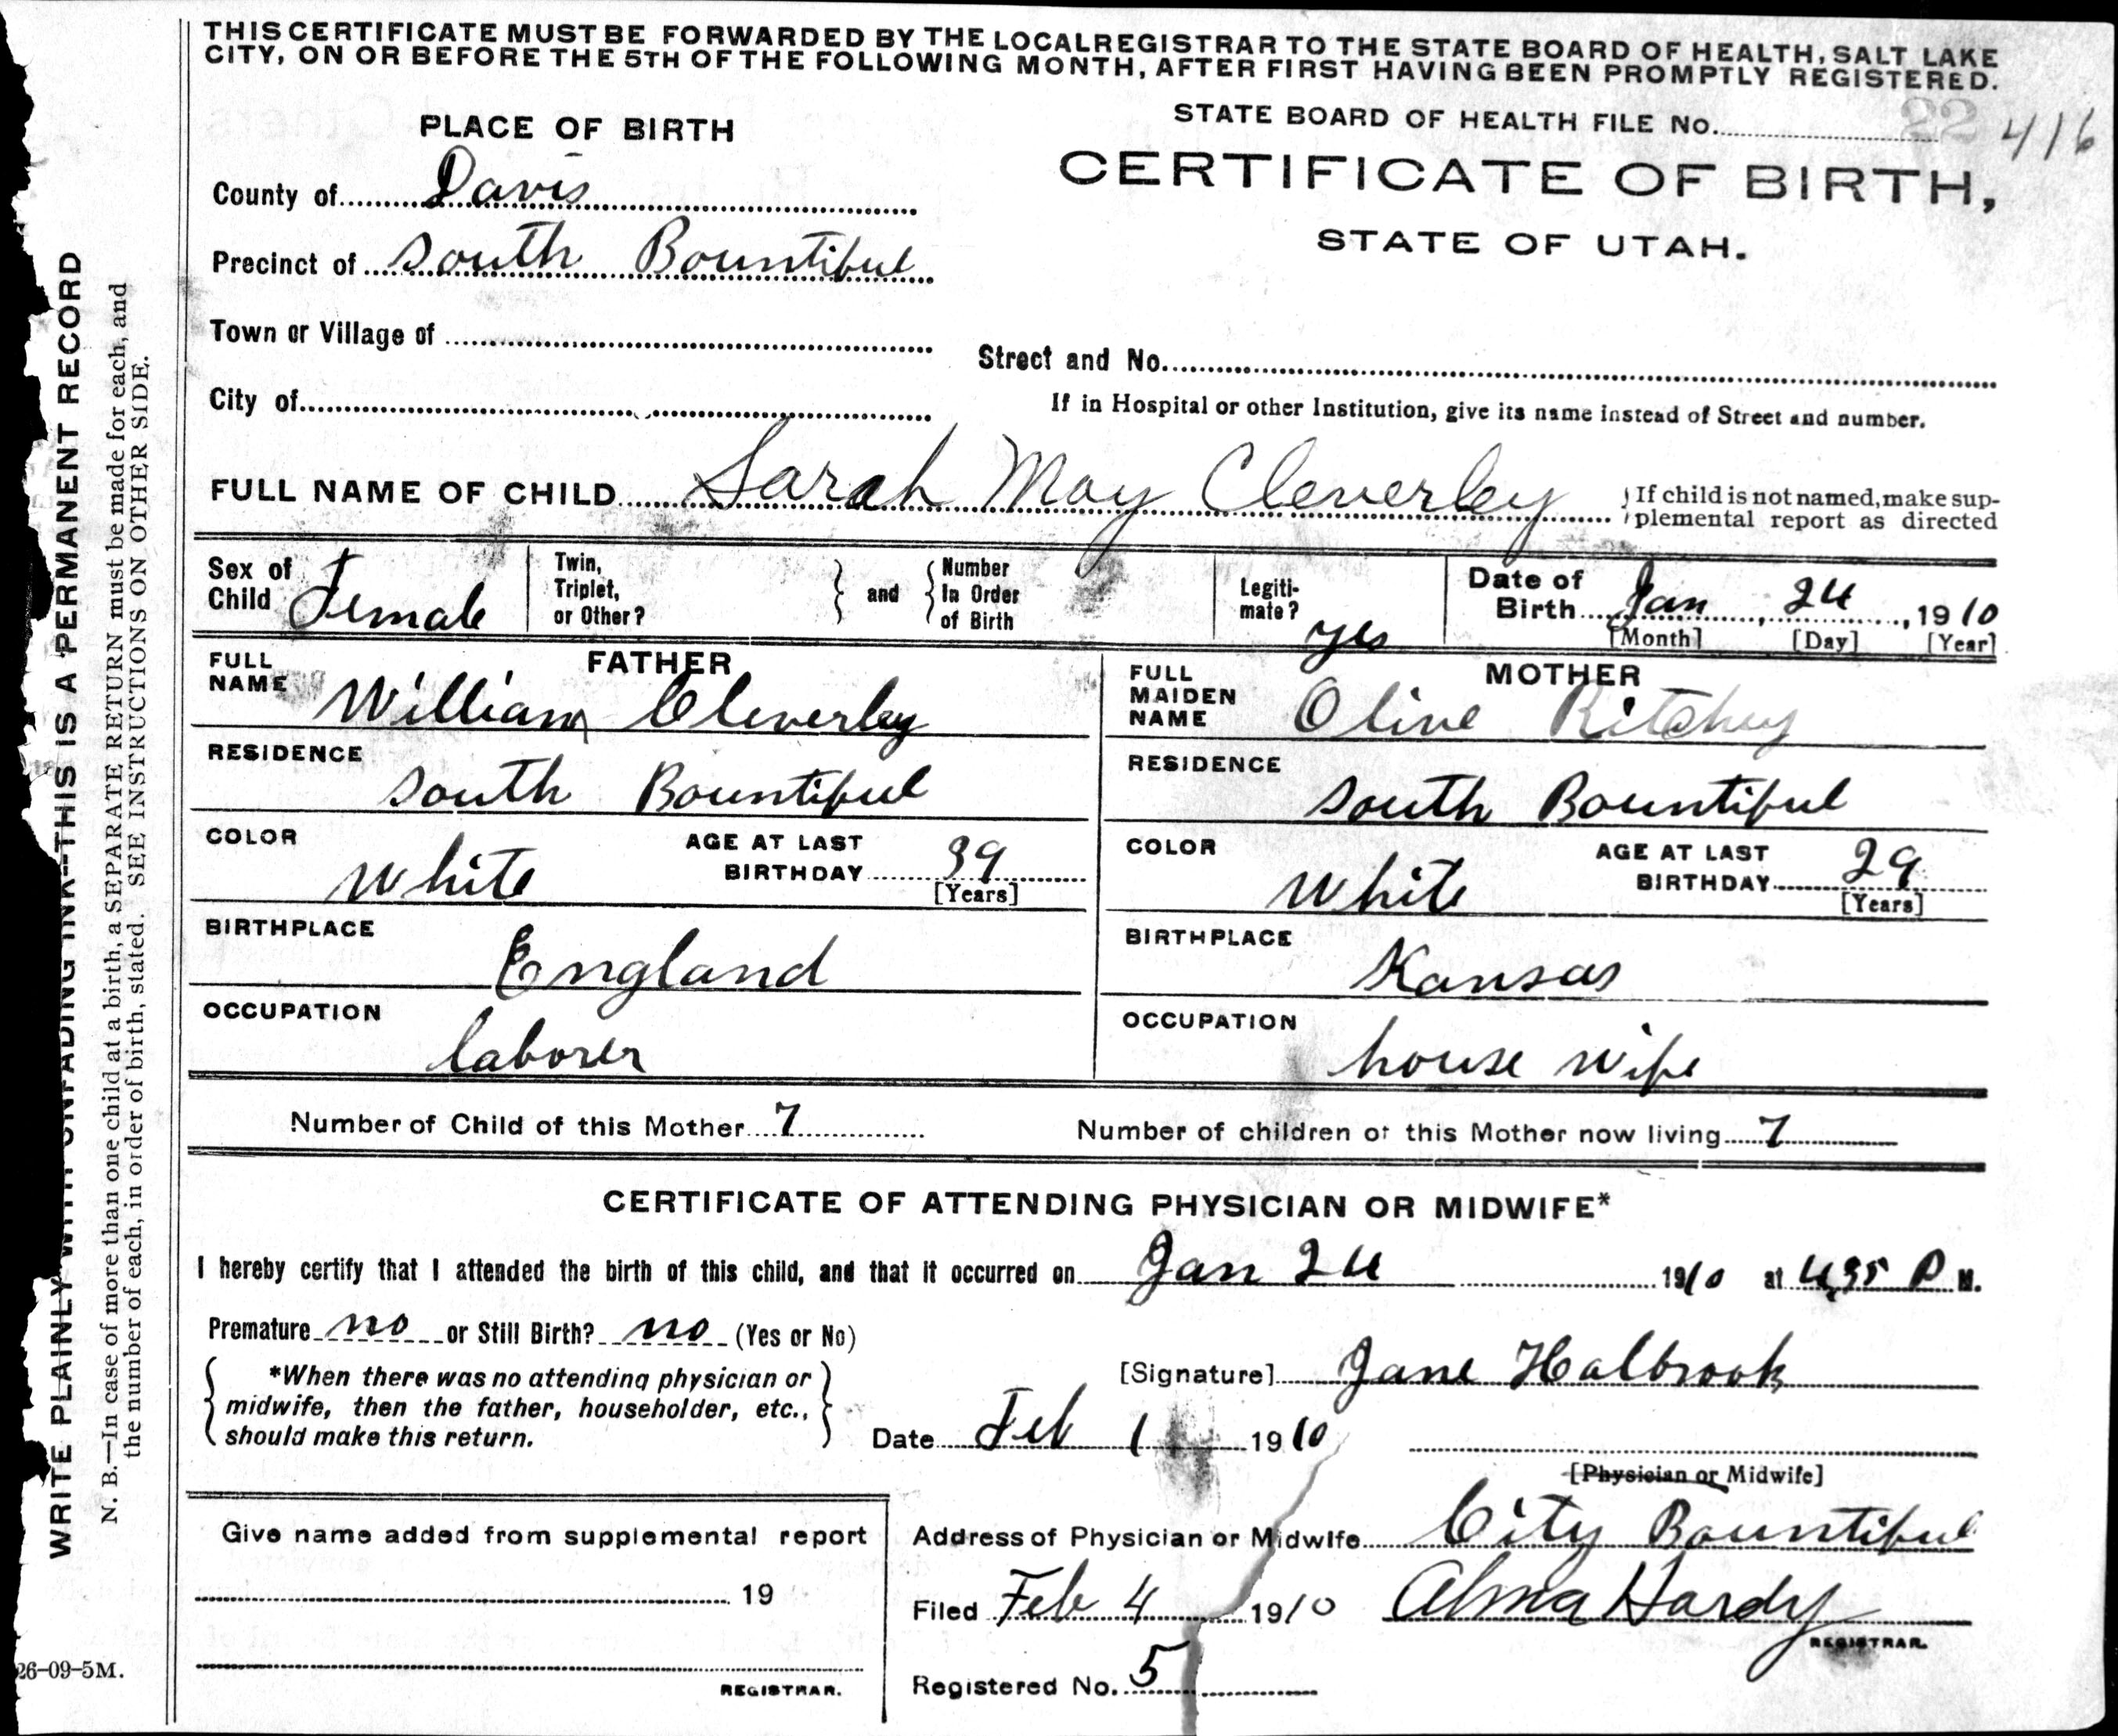 THIS CERTIFICATE MUST BE FORWARDED BY THE LOCAL REGISTRAR TO THE STATE BOARD OF HEALTH, SALT LAKE
CITY, ON OR BEFORE THE 5TH OF THE FOLLOWING MONTH, AFTER FIRST HAVING BEEN PROMPTLY REGISTERED.
PLACE OF BIRTH
STATE BOARD OF HEALTH FILE No. 22 416
CERTIFICATE OF BIRTH,
STATE OF UTAH.
County of Davis
Precinct of South Bountiful
Town or Village of
Street and No.
City of
If in Hospital or other Institution, give its name instead of Street and number.
FULL NAME OF CHILD Sarah May Cleverley
If child is not named, make sup-
plemental report as directed
Sex of Child Female
Twin, Triplet, or Other?
and
Number In Order of Birth
Legiti-
mate? yes
Date of Birth Jan 24, 1910
[Month] [Day] [Year]
FATHER
FULL NAME William Cleverley
RESIDENCE
South Bountiful
COLOR White
AGE AT LAST BIRTHDAY 39
[Years]
BIRTHPLACE
England
OCCUPATION
laborer
MOTHER
FULL MAIDEN NAME Olive Ritchey
RESIDENCE
South Bountiful
COLOR White
AGE AT LAST BIRTHDAY 29
[Years]
BIRTHPLACE
Kansas
OCCUPATION
house wife
Number of Child of this Mother 7
Number of children of this Mother now living 7
CERTIFICATE OF ATTENDING PHYSICIAN OR MIDWIFE*
I hereby certify that I attended the birth of this child, and that it occurred on Jan 24 1910 at 4,35 P M.
Premature no or Still Birth? no (Yes or No)
*When there was no attending physician or
midwife, then the father, householder, etc.,
should make this return.
[Signature] Jane Halbrook
Date Feb 1 1910
[Physician or Midwife]
Give name added from supplemental report
19
REGISTRAR.
Address of Physician or Midwife City Bountiful
Filed Feb 4 1910 Alma Hardy
REGISTRAR.
Registered No. 5
26-09-5M.
WRITE PLAINLY WITH UNFADING INK—THIS IS A PERMANENT RECORD
N. B.—In case of more than one child at a birth, a SEPARATE RETURN must be made for each, and
the number of each, in order of birth, stated. SEE INSTRUCTIONS ON OTHER SIDE.